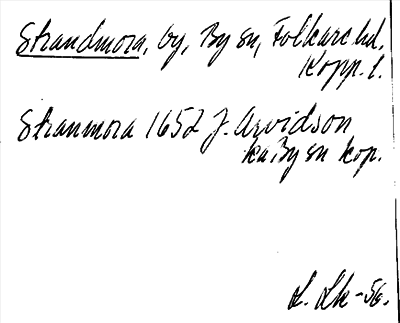 Strandmora, by, By sn, Folkare hd.
Kopp. l.
Stranmora 1652 J. Arvidson
ka By sn kop.
L. Lk -56.